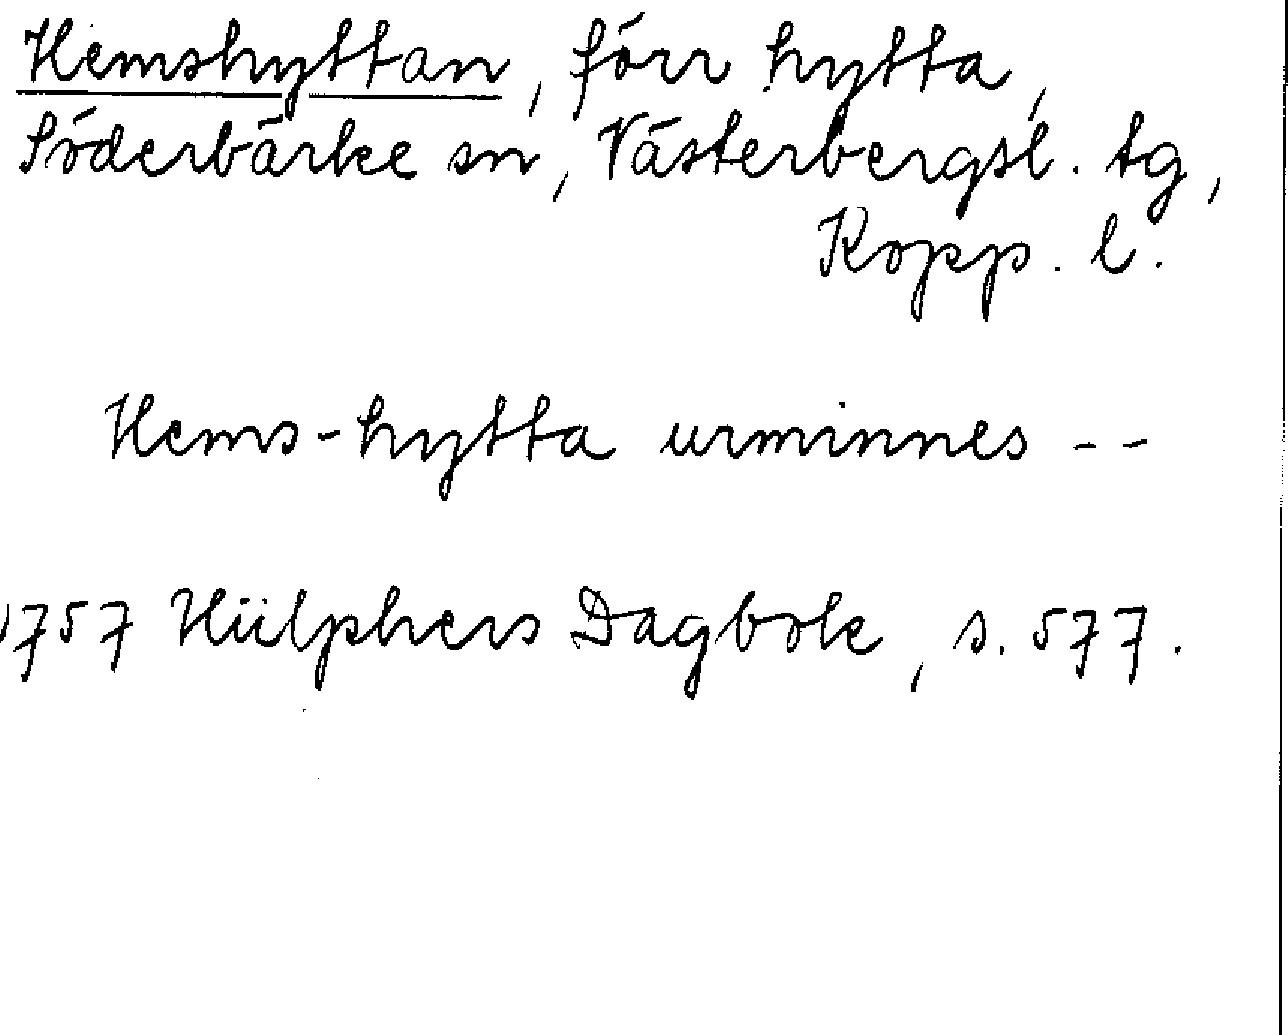 Hemshyttan, förr hytta,
Söderbärke sn, Västerbergsl. tg,
Kopp. l.
Hems-hytta urminnes --
1757 Hülphers Dagbok, s. 577.